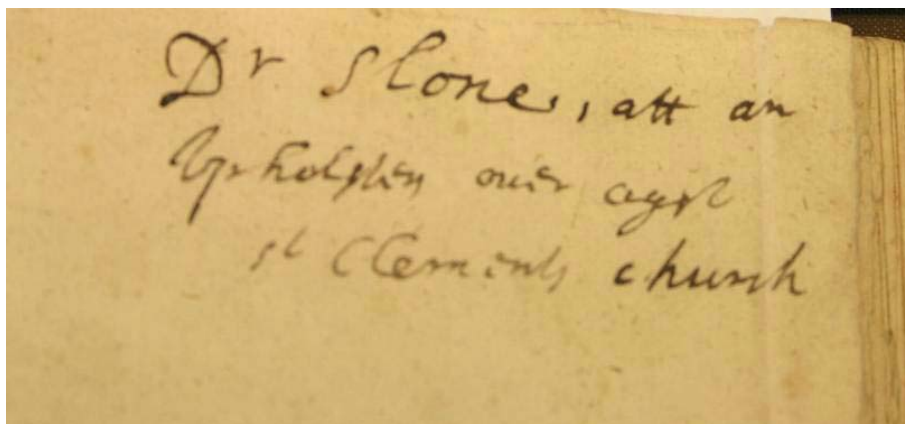 Dr Slone, att an
Upholsters over agst
st Clements church